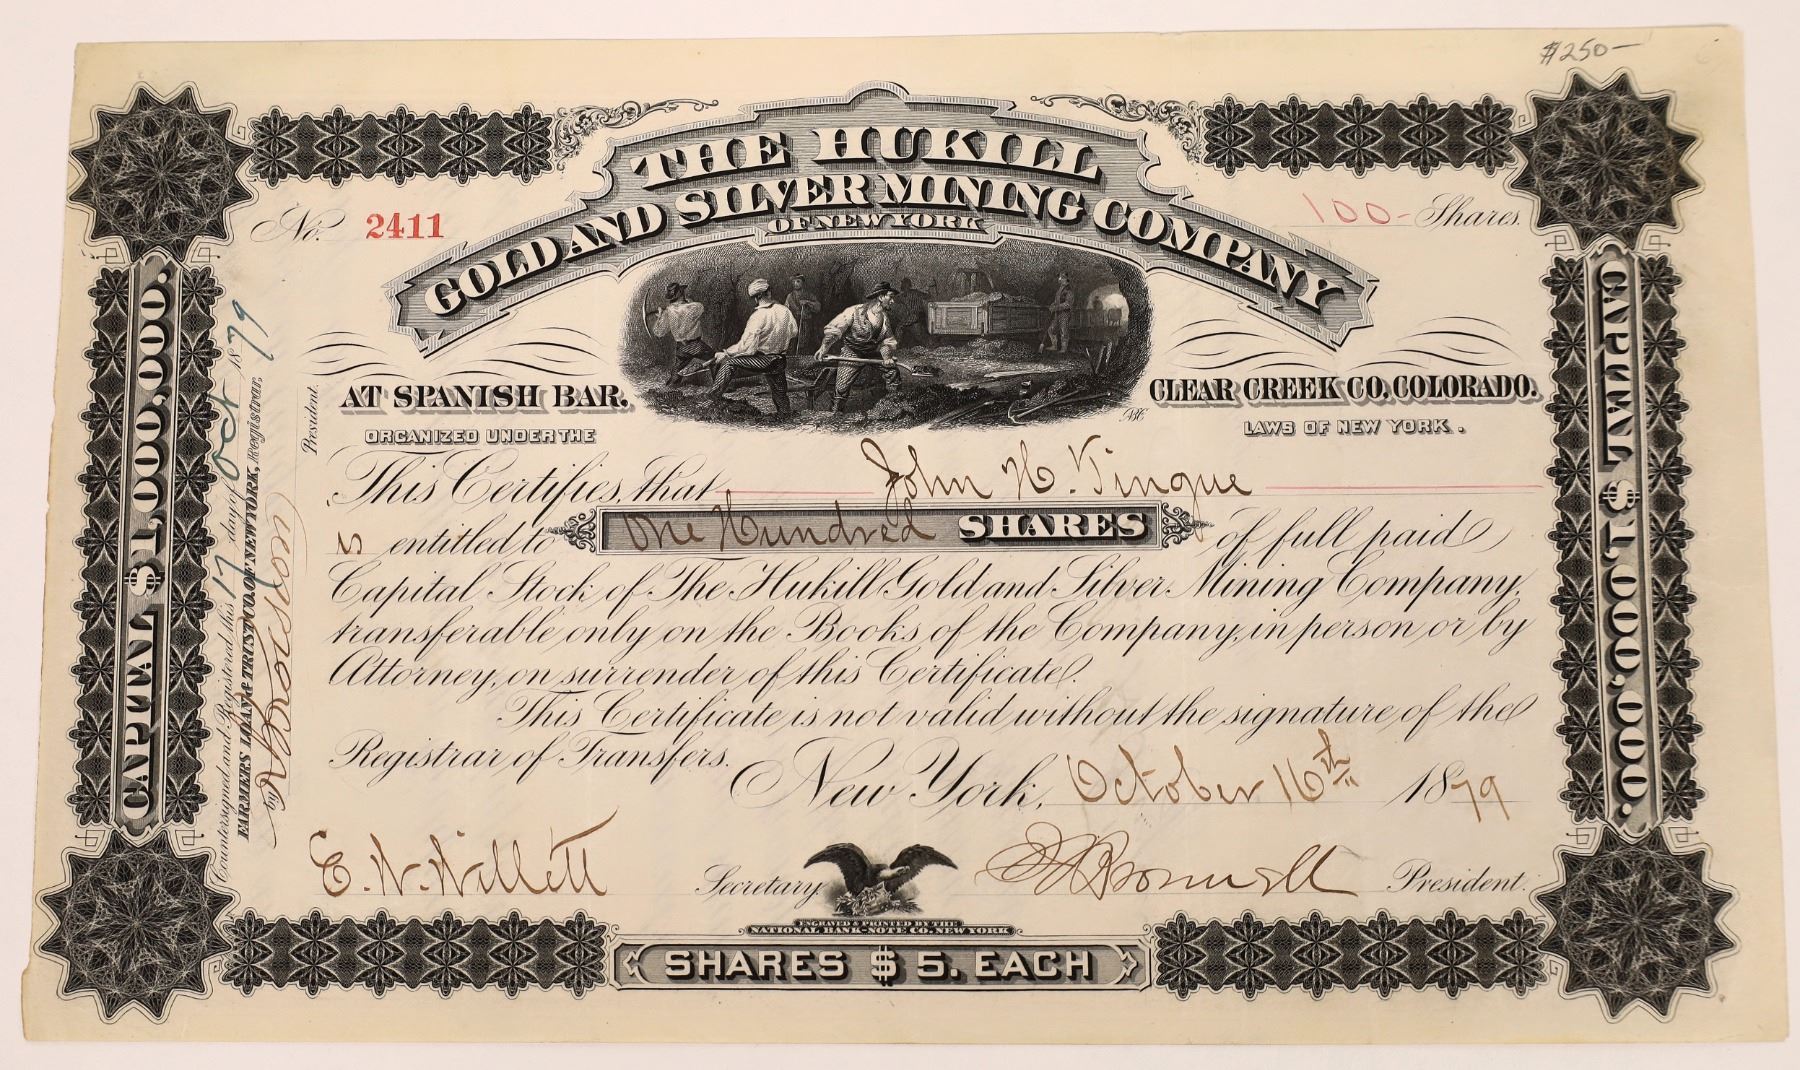 $250-
THE HUKILL
GOLD AND SILVER MINING COMPANY
OF NEW YORK
No. 2411
100- Shares.
AT SPANISH BAR.
CLEAR CREEK CO, COLORADO.
ORGANIZED UNDER THE
LAWS OF NEW YORK.
This Certifies, that John H. Tingue
is entitled to One Hundred SHARES of full paid
Capital Stock of The Hukill Gold and Silver Mining Company,
transferable only on the Books of the Company, in person or by
Attorney, on surrender of this Certificate.
This Certificate is not valid without the signature of the
Registrar of Transfers.
New York, October 16th 1879
E. W. Willett Secretary
President.
ENGRAVED & PRINTED BY THE
NATIONAL BANK-NOTE CO. NEW YORK
SHARES $5. EACH
CAPITAL $1,000,000.
CAPITAL $1,000,000.
Countersigned and Registered, this 17 day of Oct 1879
FARMERS LOAN & TRUST CO. OF NEW YORK, Registrar,
by
President.